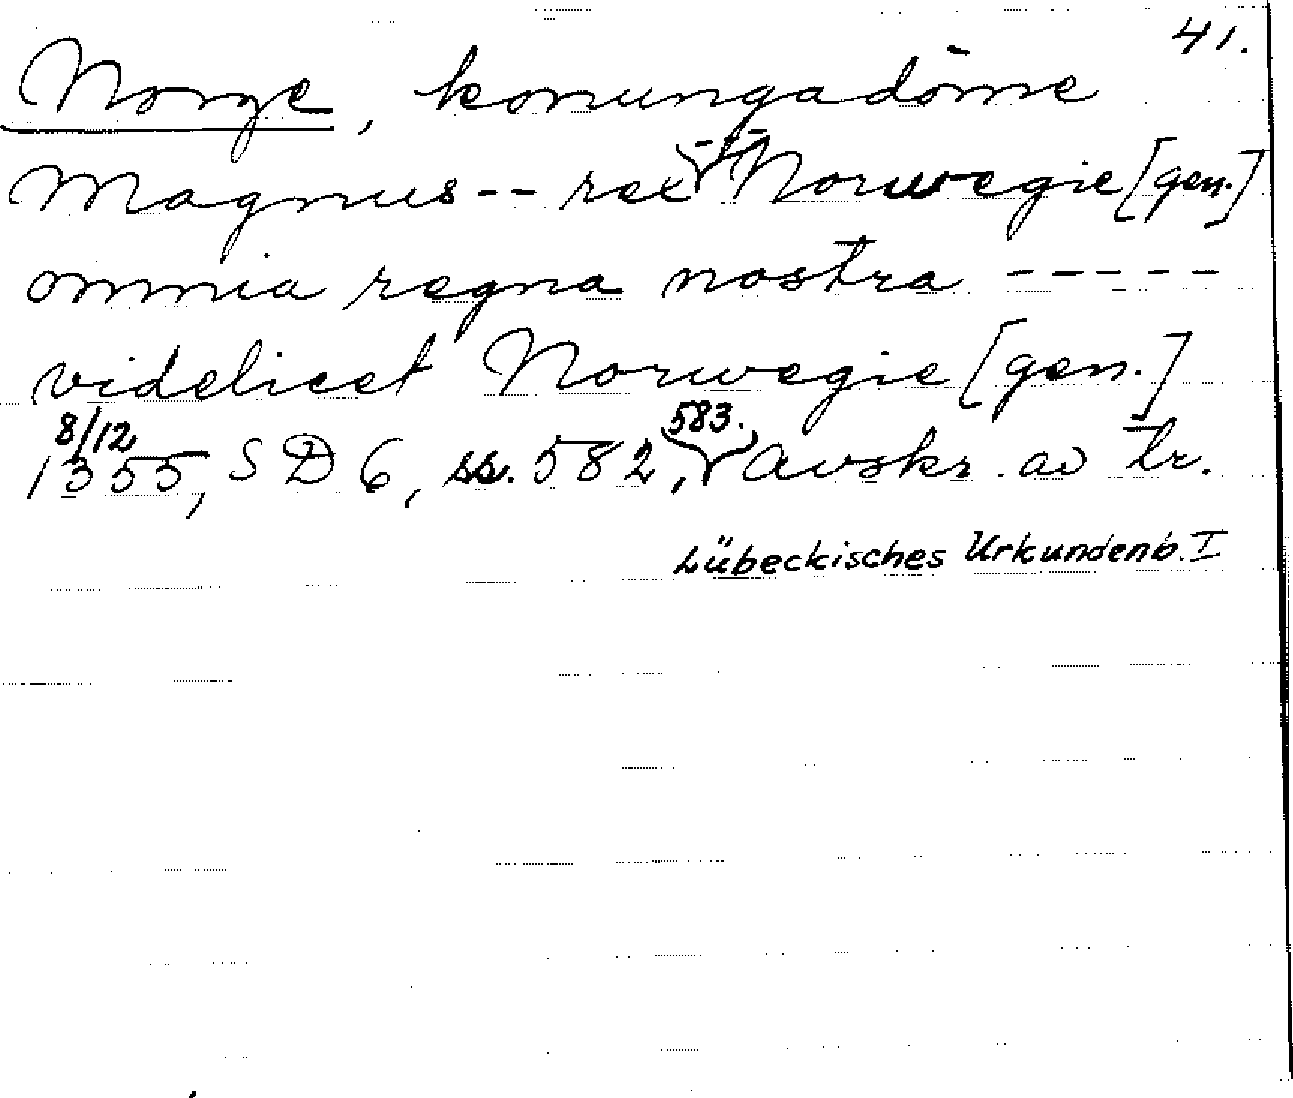 41.
Norge, konungadöme
Magnus -- rex -- Norwegie [gen.]
omnia regna nostra -----
videlicet Norwegie [gen.]
8/12 583.
1355, SD 6, ss. 582, avskr. av tr.
Lübeckisches Urkundenb. I